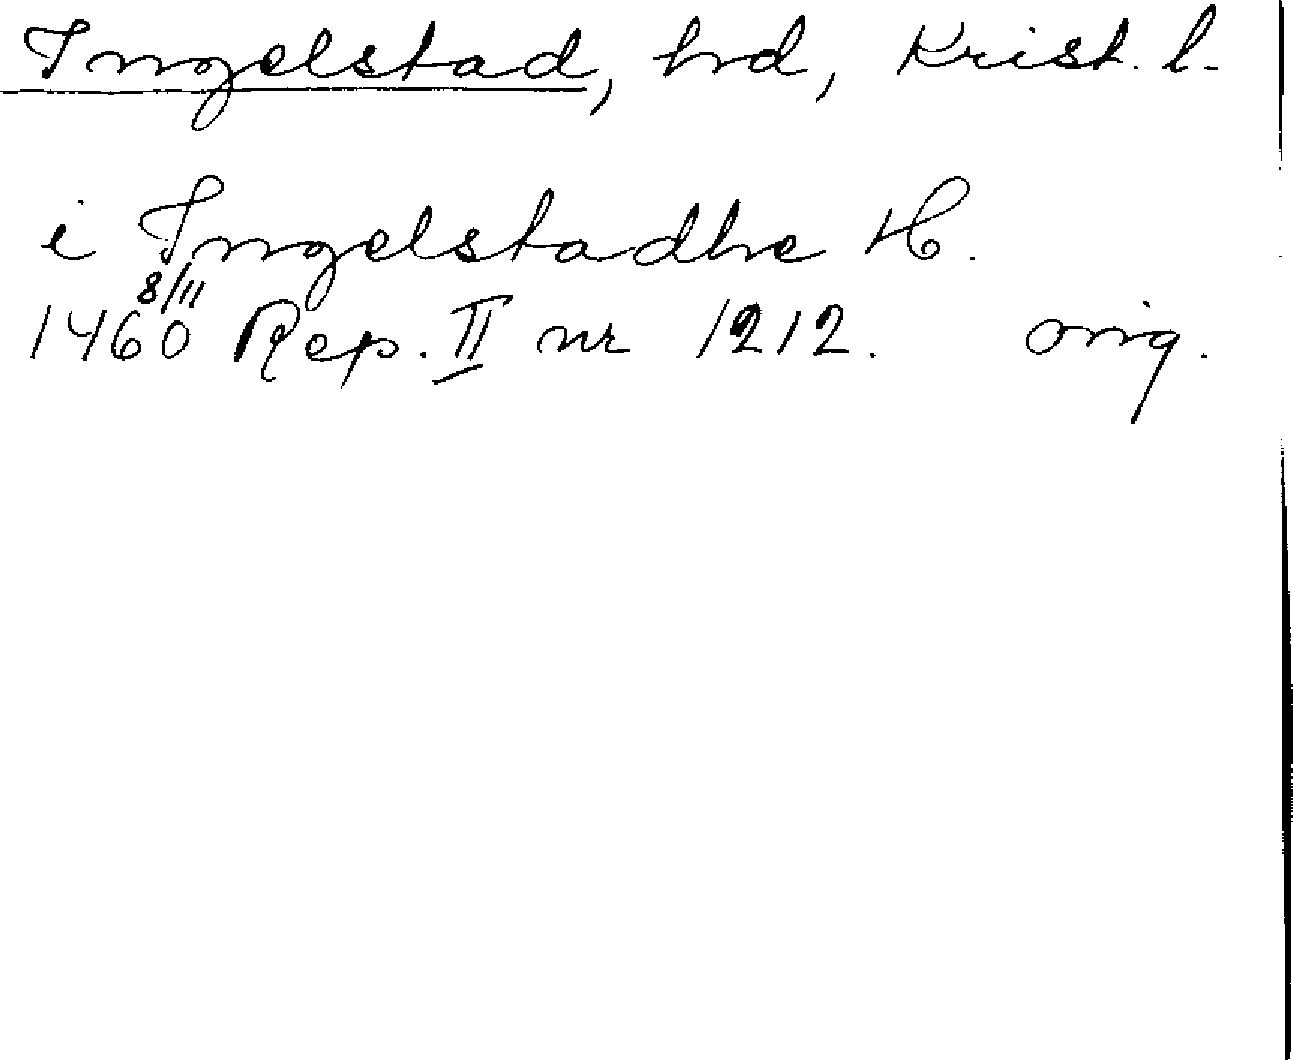 Ingelstad, hd, Krist. l.
i Ingelstadhe H.
8/11
1460 Rep. II nr 1212. orig.